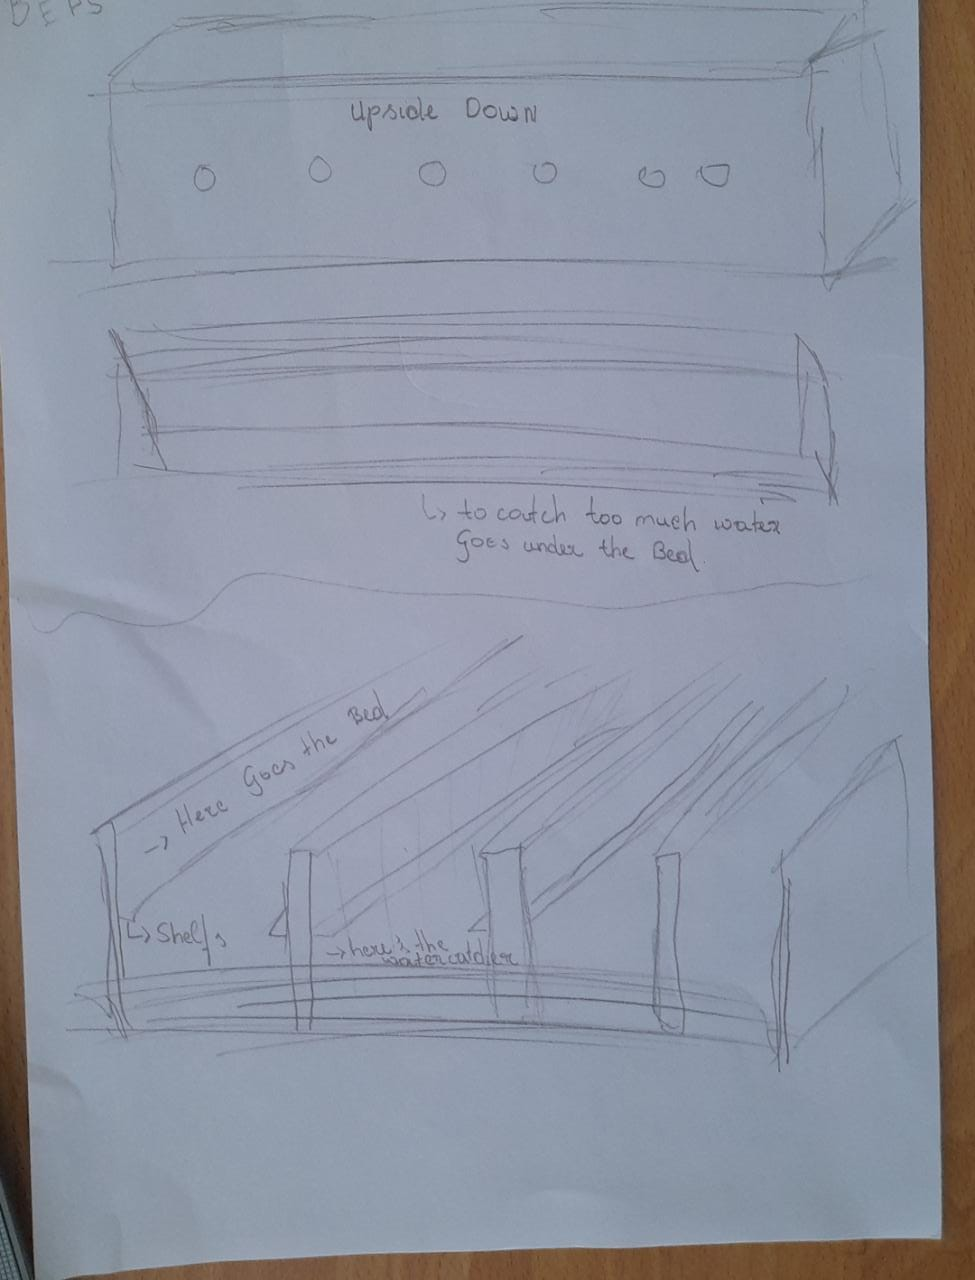 BEPS
Upside Down
↳ to catch too much water
Goes under the Bed.
→ Here Goes the Bed
↳ Shelfs
→ here's the